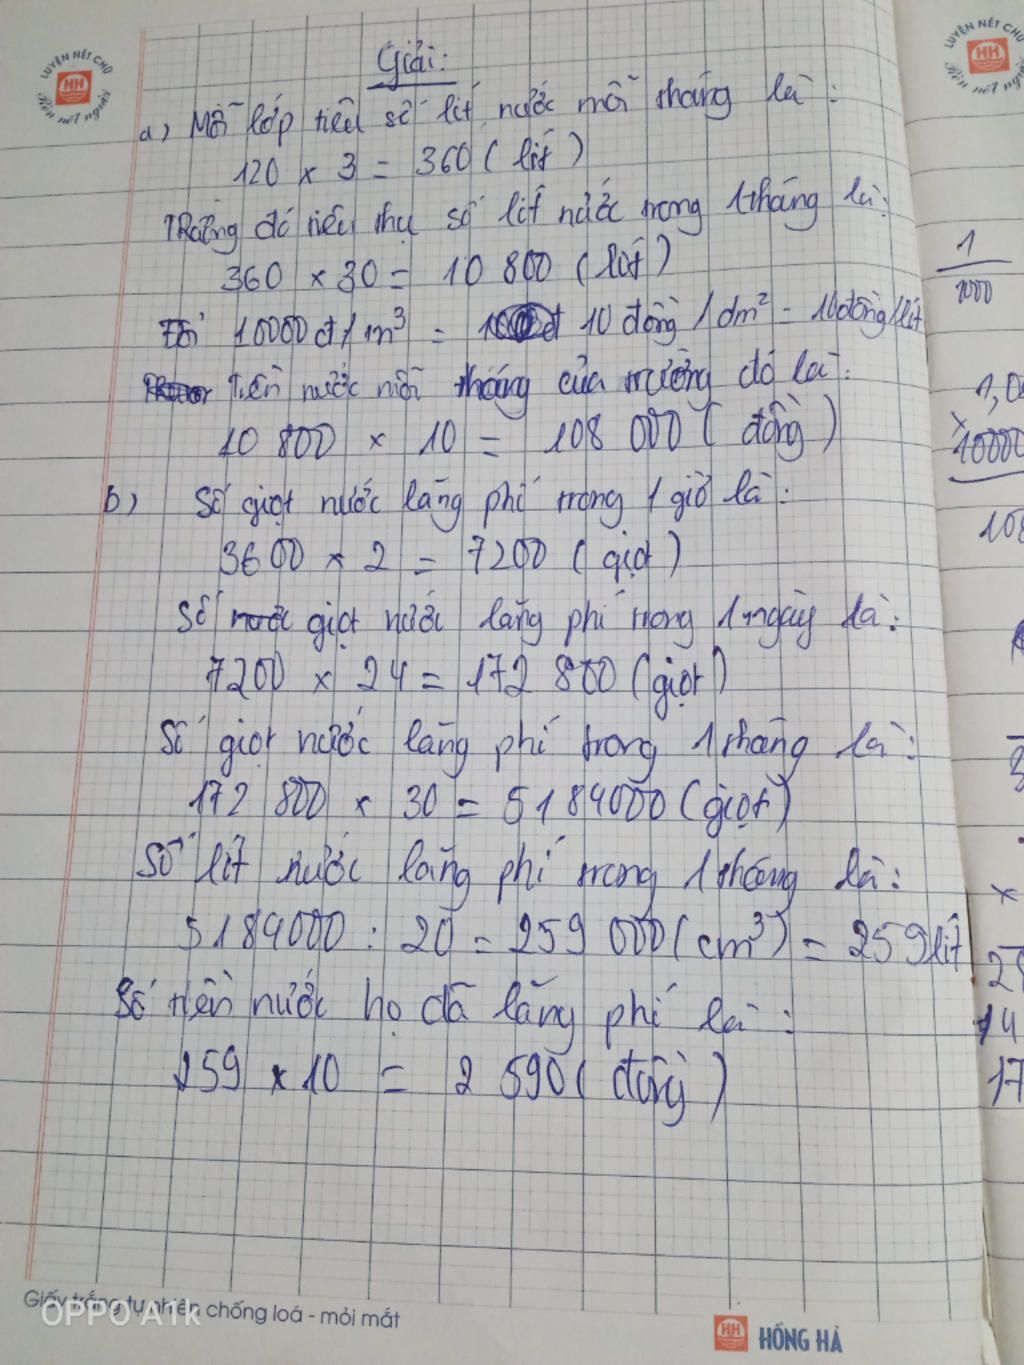 LUYỆN NÉT CHỮ
HH
Rèn nết người
LUYỆN NÉT CHỮ
HH
Rèn nết người
Giải:
a) Mỗi lớp tiêu số lít nước mỗi tháng là:
120 x 3 = 360 (lít)
Trường đó tiêu thụ số lít nước trong 1 tháng là:
360 x 30 = 10 800 (lít)
Đổi 10000 đ/m³ = 10 đồng/dm² = 10 đồng/lít
Tiền nước mỗi tháng của trường đó là:
10 800 x 10 = 108 000 (đồng)
b) Số giọt nước lãng phí trong 1 giờ là:
3600 x 2 = 7200 (giọt)
Số giọt nước lãng phí trong 1 ngày là:
7200 x 24 = 172 800 (giọt)
Số giọt nước lãng phí trong 1 tháng là:
172 800 x 30 = 5184000 (giọt)
Số lít nước lãng phí trong 1 tháng là:
5184000 : 20 = 259 000 (cm³) = 259 lít
Số tiền nước họ đã lãng phí là:
259 x 10 = 2 590 (đồng)
1
1000
x
10000
108
x
14
17
Giấy trắng tự nhiên chống loá - mỏi mắt
OPPO A1k
HH HỒNG HÀ